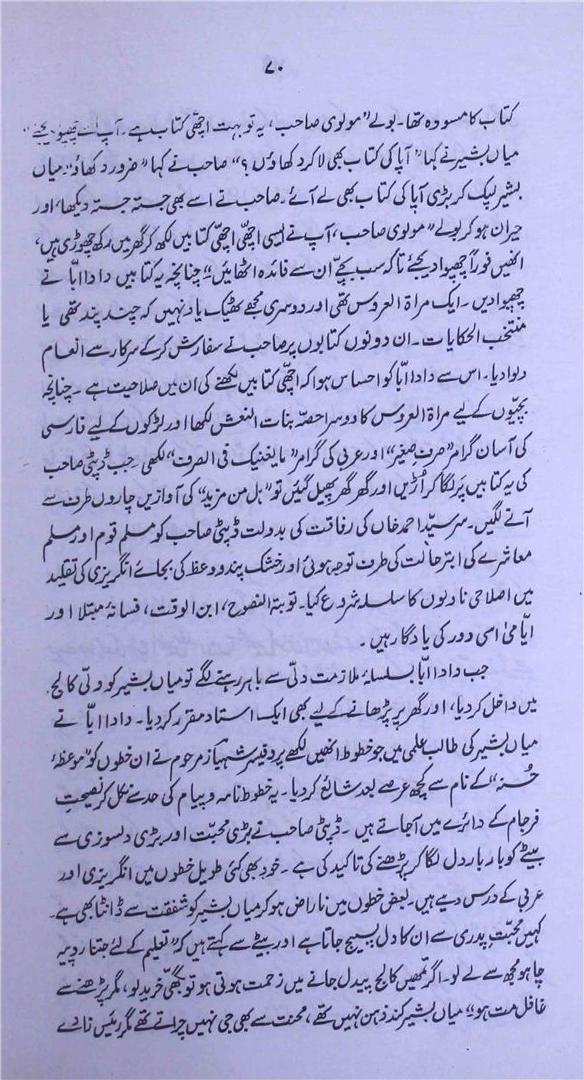 ۷۰
کتاب کا مسودہ تھا۔ بولے "مولوی صاحب، یہ تو بہت اچھی کتاب ہے۔ آپ اسے چھپوا دیجئے"
میاں بشیر نے کہا "آپا کی کتاب بھی لا کر دکھاؤں؟" صاحب نے کہا "ضرور دکھاؤ" میاں
بشیر لپک کر بڑی آپا کی کتاب بھی لے آئے۔ صاحب نے اسے بھی جستہ جستہ دیکھا، اور
حیران ہو کر بولے "مولوی صاحب، آپ نے ایسی اچھی اچھی کتابیں لکھ کر گھر میں رکھ چھوڑی ہیں،
انھیں فوراً چھپوا دیجئے تاکہ سب بچے ان سے فائدہ اٹھائیں" چنانچہ یہ کتابیں دادا ابا نے
چھپوا دیں۔ ایک مراۃ العروس تھی اور دوسری مجھے ٹھیک یاد نہیں کہ چند پند تھی یا
منتخب الحکایات۔ ان دونوں کتابوں پر صاحب نے سفارش کر کے سرکار سے انعام
دلوا دیا۔ اس سے دادا ابا کو احساس ہوا کہ اچھی کتابیں لکھنے کی ان میں صلاحیت ہے۔ چنانچہ
بچیوں کے لیے مراۃ العروس کا دوسرا حصہ بنات النعش لکھا اور لڑکوں کے لیے فارسی
کی آسان گرامر "صرف صغیر" اور عربی کی گرامر "ما یغنیک فی الصرف" لکھی۔ جب ڈپٹی صاحب
کی یہ کتابیں پر لگا کر اُڑیں اور گھر گھر پھیل گئیں تو "ہل من مزید" کی آوازیں چاروں طرف سے
آنے لگیں۔ سر سید احمد خاں کی رفاقت کی بدولت ڈپٹی صاحب کو مسلم قوم اور مسلم
معاشرے کی ابتر حالت کی طرف توجہ ہوئی اور خشک پند و وعظ کی بجائے انگریزی کی تقلید
میں اصلاحی ناولوں کا سلسلہ شروع کیا۔ توبۃ النصوح، ابن الوقت، فسانۂ مبتلا اور
ایامیٰ اسی دور کی یادگار ہیں۔
جب دادا ابا بسلسلۂ ملازمت دلّی سے باہر رہنے لگے تو میاں بشیر کو دلّی کالج
میں داخل کر دیا، اور گھر پر پڑھانے کے لیے بھی ایک استاد مقرر کر دیا۔ دادا ابا نے
میاں بشیر کی طالب علمی میں جو خطوط انھیں لکھے پروفیسر شہباز مرحوم نے ان خطوں کو "موعظۂ
حسنہ" کے نام سے کچھ عرصے بعد شائع کر دیا۔ یہ خطوط نامہ و پیام کی حد سے نکل کر نصیحت
فرجام کے دائرے میں آجاتے ہیں۔ ڈپٹی صاحب نے بڑی محبت اور بڑی دلسوزی سے
بیٹے کو بار بار دل لگا کر پڑھنے کی تاکید کی ہے۔ خود بھی کئی طویل خطوں میں انگریزی اور
عربی کے درس دیے ہیں۔ بعض خطوں میں ناراض ہو کر میاں بشیر کو شفقت سے ڈانٹا بھی ہے۔
کہیں محبت پدری سے ان کا دل پسیج جاتا ہے اور بیٹے سے کہتے ہیں کہ "تعلیم کے لئے جتنا روپیہ
چاہو مجھ سے لے لو۔ اگر تمھیں کالج پیدل جانے میں زحمت ہوتی ہو تو بگھی خرید لو، مگر پڑھنے سے
غافل مت ہو" میاں بشیر کند ذہن نہیں تھے، محنت سے بھی جی نہیں چراتے تھے مگر رئیس زادے